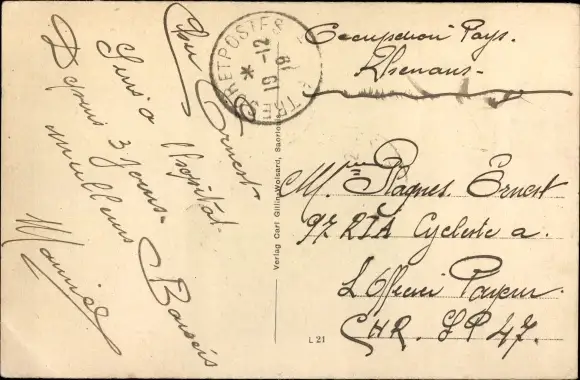 Cher Ernest
Suis a l'hopital
Depuis 3 jours - Baisers
meilleurs
Maurice
TRESOR ET POSTES
*
10 -12
19
Occupation Pays.
Rhenans -
Mr Pagnes Ernest
97 RIA Cycliste a.
L Officier Payeur.
CHR. SP 47.
Verlag Carl Gillin-Wolsard, Saarlouis
L 21